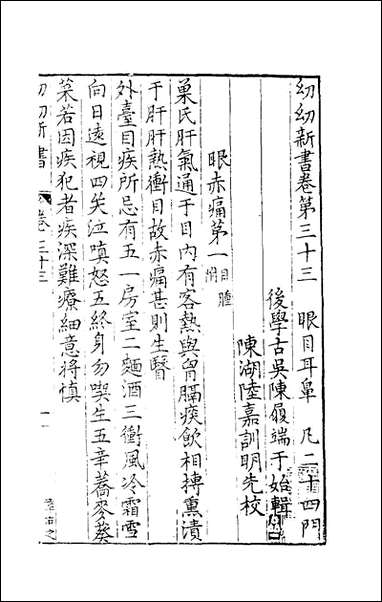 幼幼新書卷第三十三　眼目耳鼻　凡二十四門
後學古吳陳履端于始輯
陳湖陸嘉訓明先校
眼赤痛第一附目腫
巢氏肝氣通于目內有客熱與胷膈痰飲相摶熏漬
于肝肝熱衝目故赤痛甚則生瞖
外臺目疾所忌有五一房室二麵酒三衝風冷霜雪
向日遠視四哭泣嗔怒五終身勿喫生五辛蕎麥葵
菜若因疾犯者疾深難療細意將慎
幼幼新書
卷三十三
一